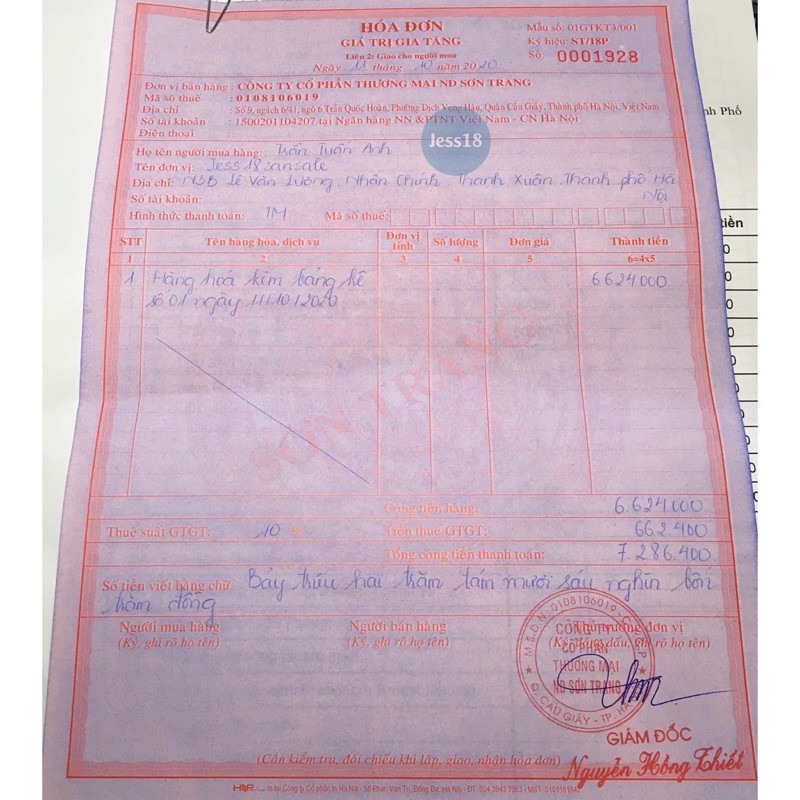 HÓA ĐƠN
GIÁ TRỊ GIA TĂNG
Liên 2: Giao cho người mua
Ngày 11 tháng 10 năm 2020
Mẫu số: 01GTKT3/001
Ký hiệu: ST/18P
Số: 0001928
Đơn vị bán hàng : CÔNG TY CỔ PHẦN THƯƠNG MẠI ND SƠN TRANG
Mã số thuế : 0108106019
Địa chỉ : Số 9, ngách 6/41, ngõ 6 Trần Quốc Hoàn, Phường Dịch Vọng Hậu, Quận Cầu Giấy, Thành phố Hà Nội, Việt Nam
Số tài khoản : 1500201104207 tại Ngân hàng NN &PTNT Việt Nam - CN Hà Nội
Điện thoại :
Jess18
Họ tên người mua hàng: Trần Tuấn Anh
Tên đơn vị: Jess 18 sansale
Địa chỉ: N3B Lê Văn Lương, Nhân Chính, Thanh Xuân, Thành phố Hà Nội
Số tài khoản:
Hình thức thanh toán: TM Mã số thuế:
STT Tên hàng hóa, dịch vụ Đơn vị tính Số lượng Đơn giá Thành tiền
1 2 3 4 5 6=4x5
1 Hàng hoá kèm bảng kê 6624000
số 01 ngày 11/10/2020
SƠN TRANG
Cộng tiền hàng: 6.624.000
Thuế suất GTGT: 10 % Tiền thuế GTGT: 662.400
Tổng cộng tiền thanh toán: 7.286.400
Số tiền viết bằng chữ: Bảy triệu hai trăm tám mươi sáu nghìn bốn
trăm đồng
Người mua hàng Người bán hàng Thủ trưởng đơn vị
(Ký, ghi rõ họ tên) (Ký, ghi rõ họ tên) (Ký, đóng dấu, ghi rõ họ tên)
M.S.D.N: 0108106019
CÔNG TY
CỔ PHẦN
THƯƠNG MẠI
ND SƠN TRANG
Q. CẦU GIẤY - TP. HÀ
GIÁM ĐỐC
Nguyễn Hồng Thiết
(Cần kiểm tra, đối chiếu khi lập, giao, nhận hóa đơn)
In tại Công ty Cổ phần In Hà Nội
nh Phố
tiền